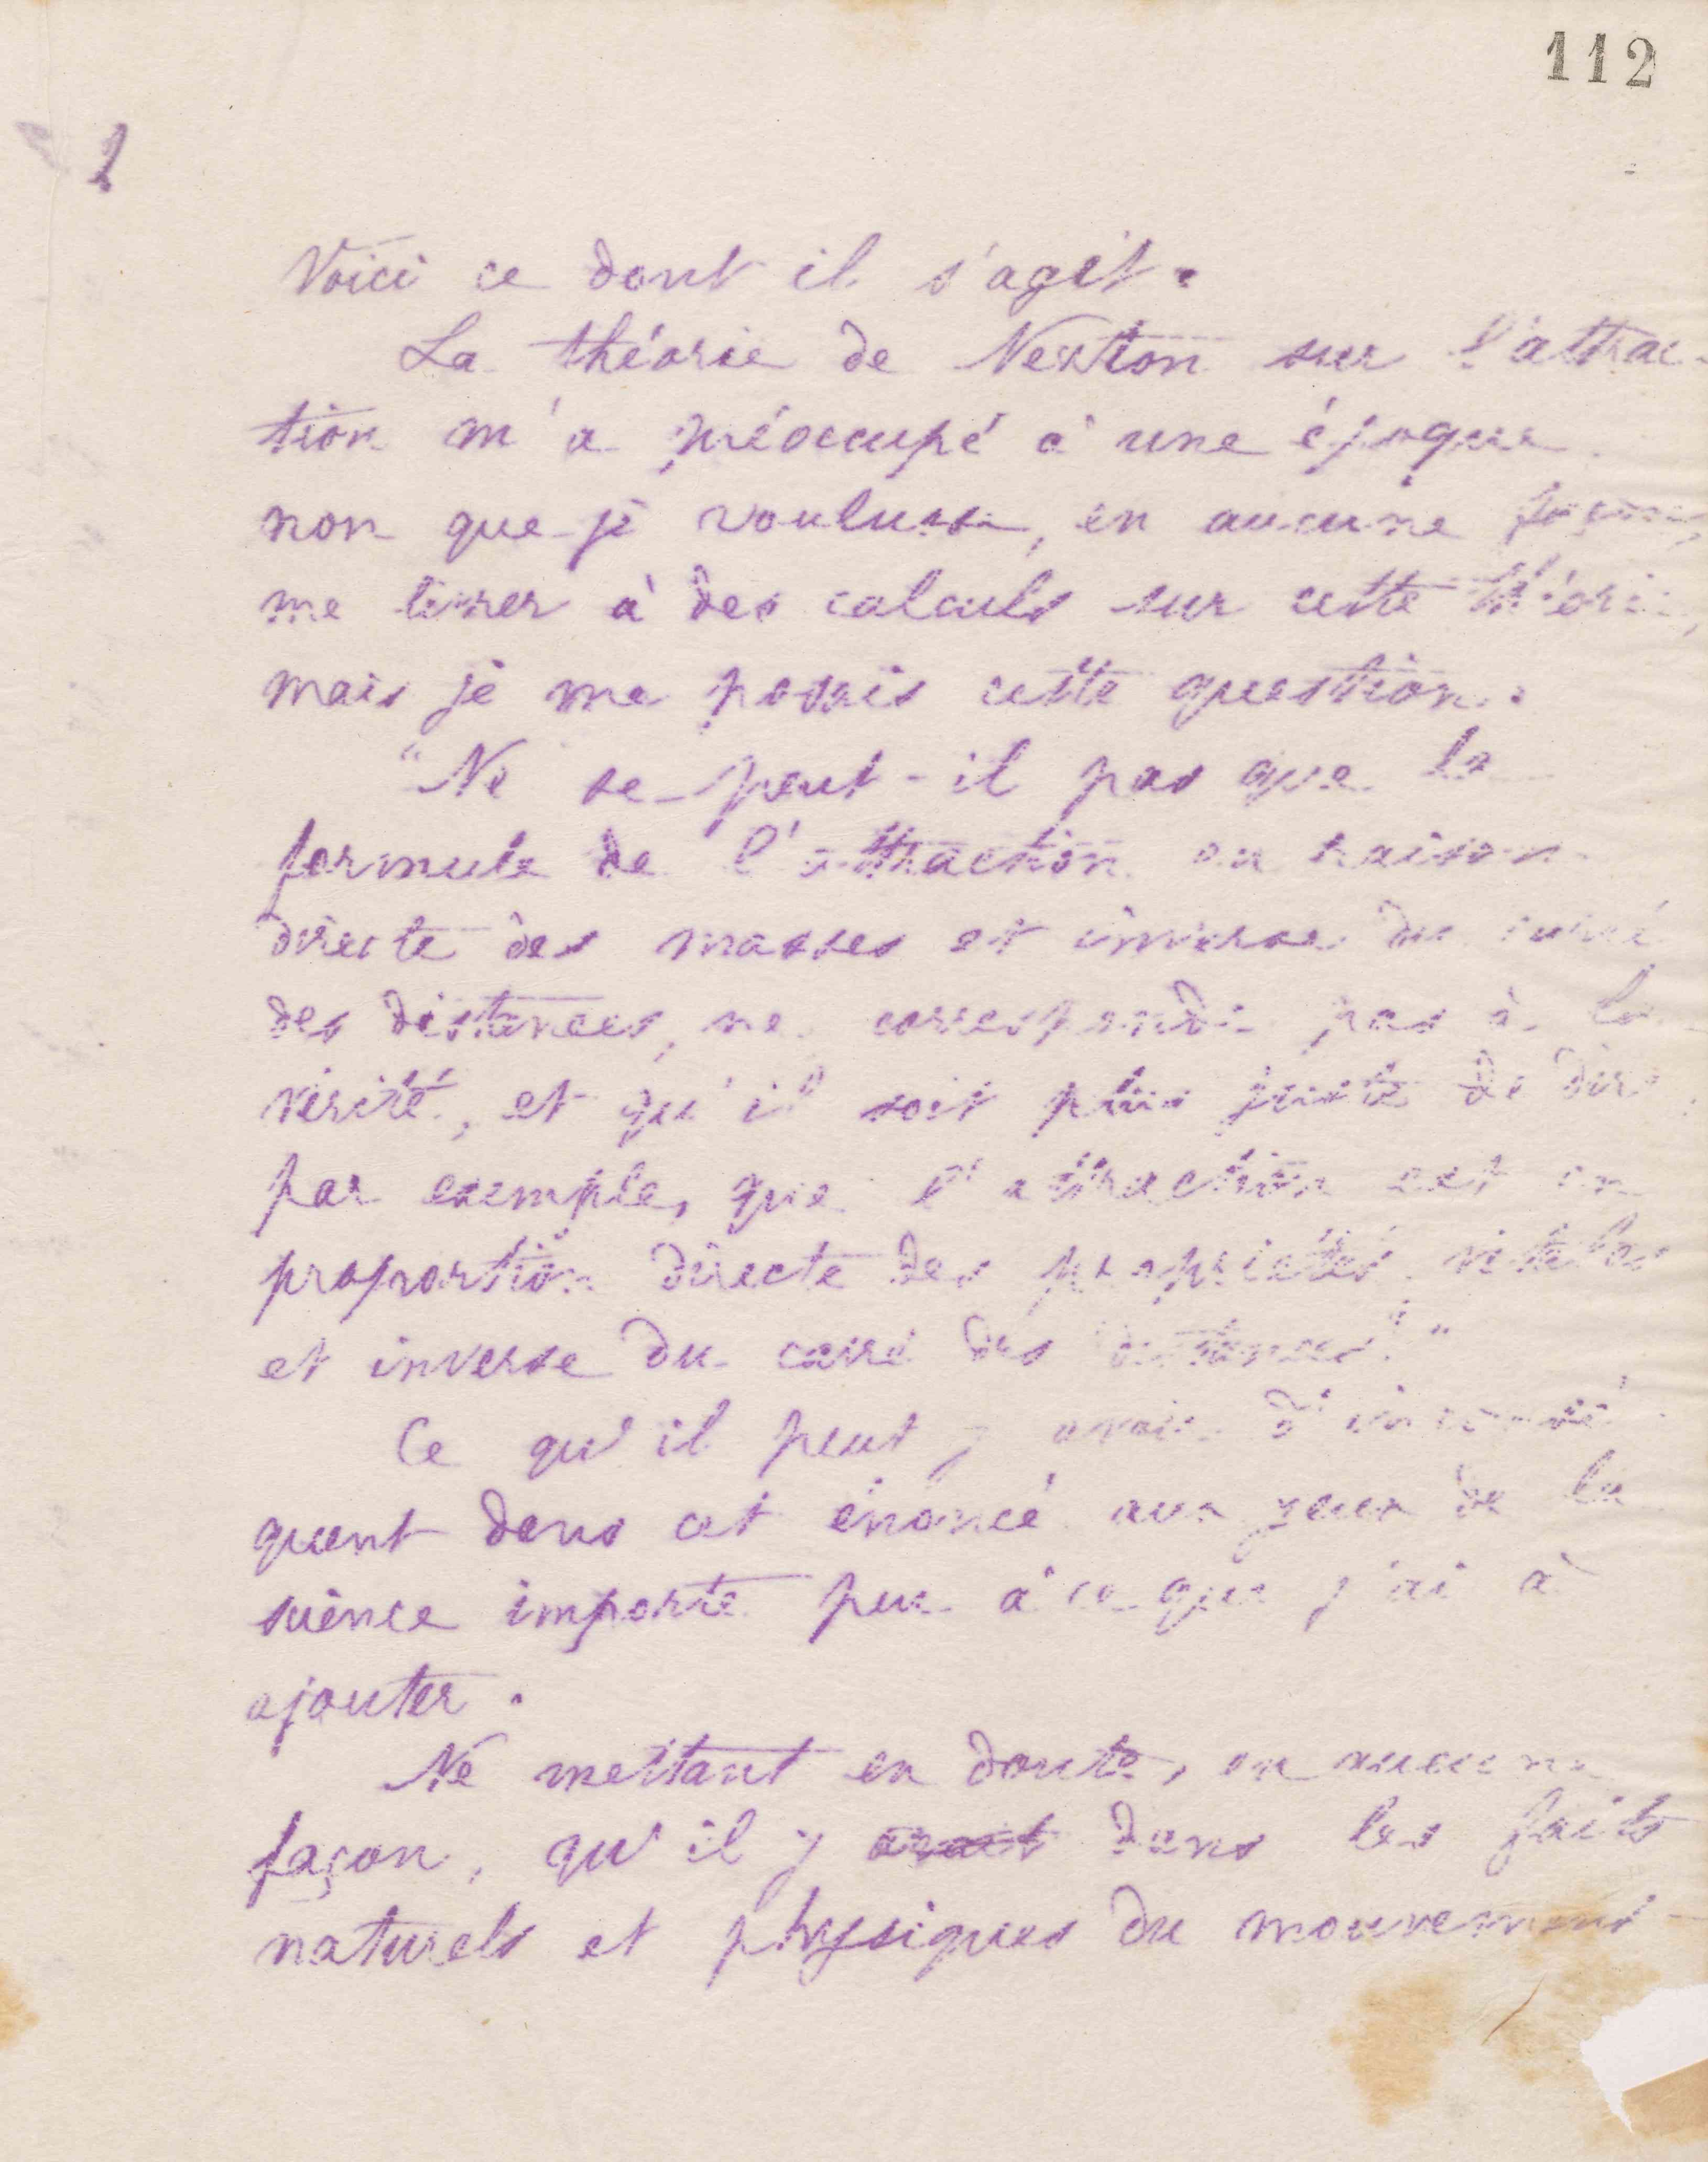 112
2
Voici ce dont il s'agit.
La théorie de Newton sur l'attrac-
tion m'a préoccupé à une époque
non que je voulusse, en aucune façon,
me livrer à des calculs sur cette théorie,
mais je me posais cette question.
"Ne se peut-il pas que la
formule de l'attraction en raison
directe des masses et inverse du carré
des distances, ne corresponde pas à la
vérité, et qu'il soit plus juste de dire,
par exemple, que l'attraction est en
proportion directe des propriétés vitales
et inverse du carré des distances."
Ce qu'il peut y avoir d'
quent dans cet énoncé aux yeux de la
science importe peu à ce que j'ai à
ajouter.
Ne mettant en doute, en aucune
façon, qu'il y avait dans les faits
naturels et physiques du mouvement